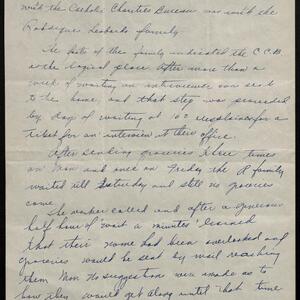 with the Catholic Charities Bureau was with the
Rodriguez Leobardo family.
The facts of the family indicated the C.C.B.
as the logical place. After more than a
week of waiting an interviewer was sent
to the home, and that step was preceded
by day of waiting at 102 for a
ticket for an interview at their office.
After sending groceries three times
on Mon and once on Friday the R family
waited till Saturday and still no groceries
came.
The worker called and after a generous
half hour of "wait a minutes" learned
that their name had been overlooked and
groceries would be sent by mail reaching
them Mon. No suggestion were made as to
how they would get along until that time